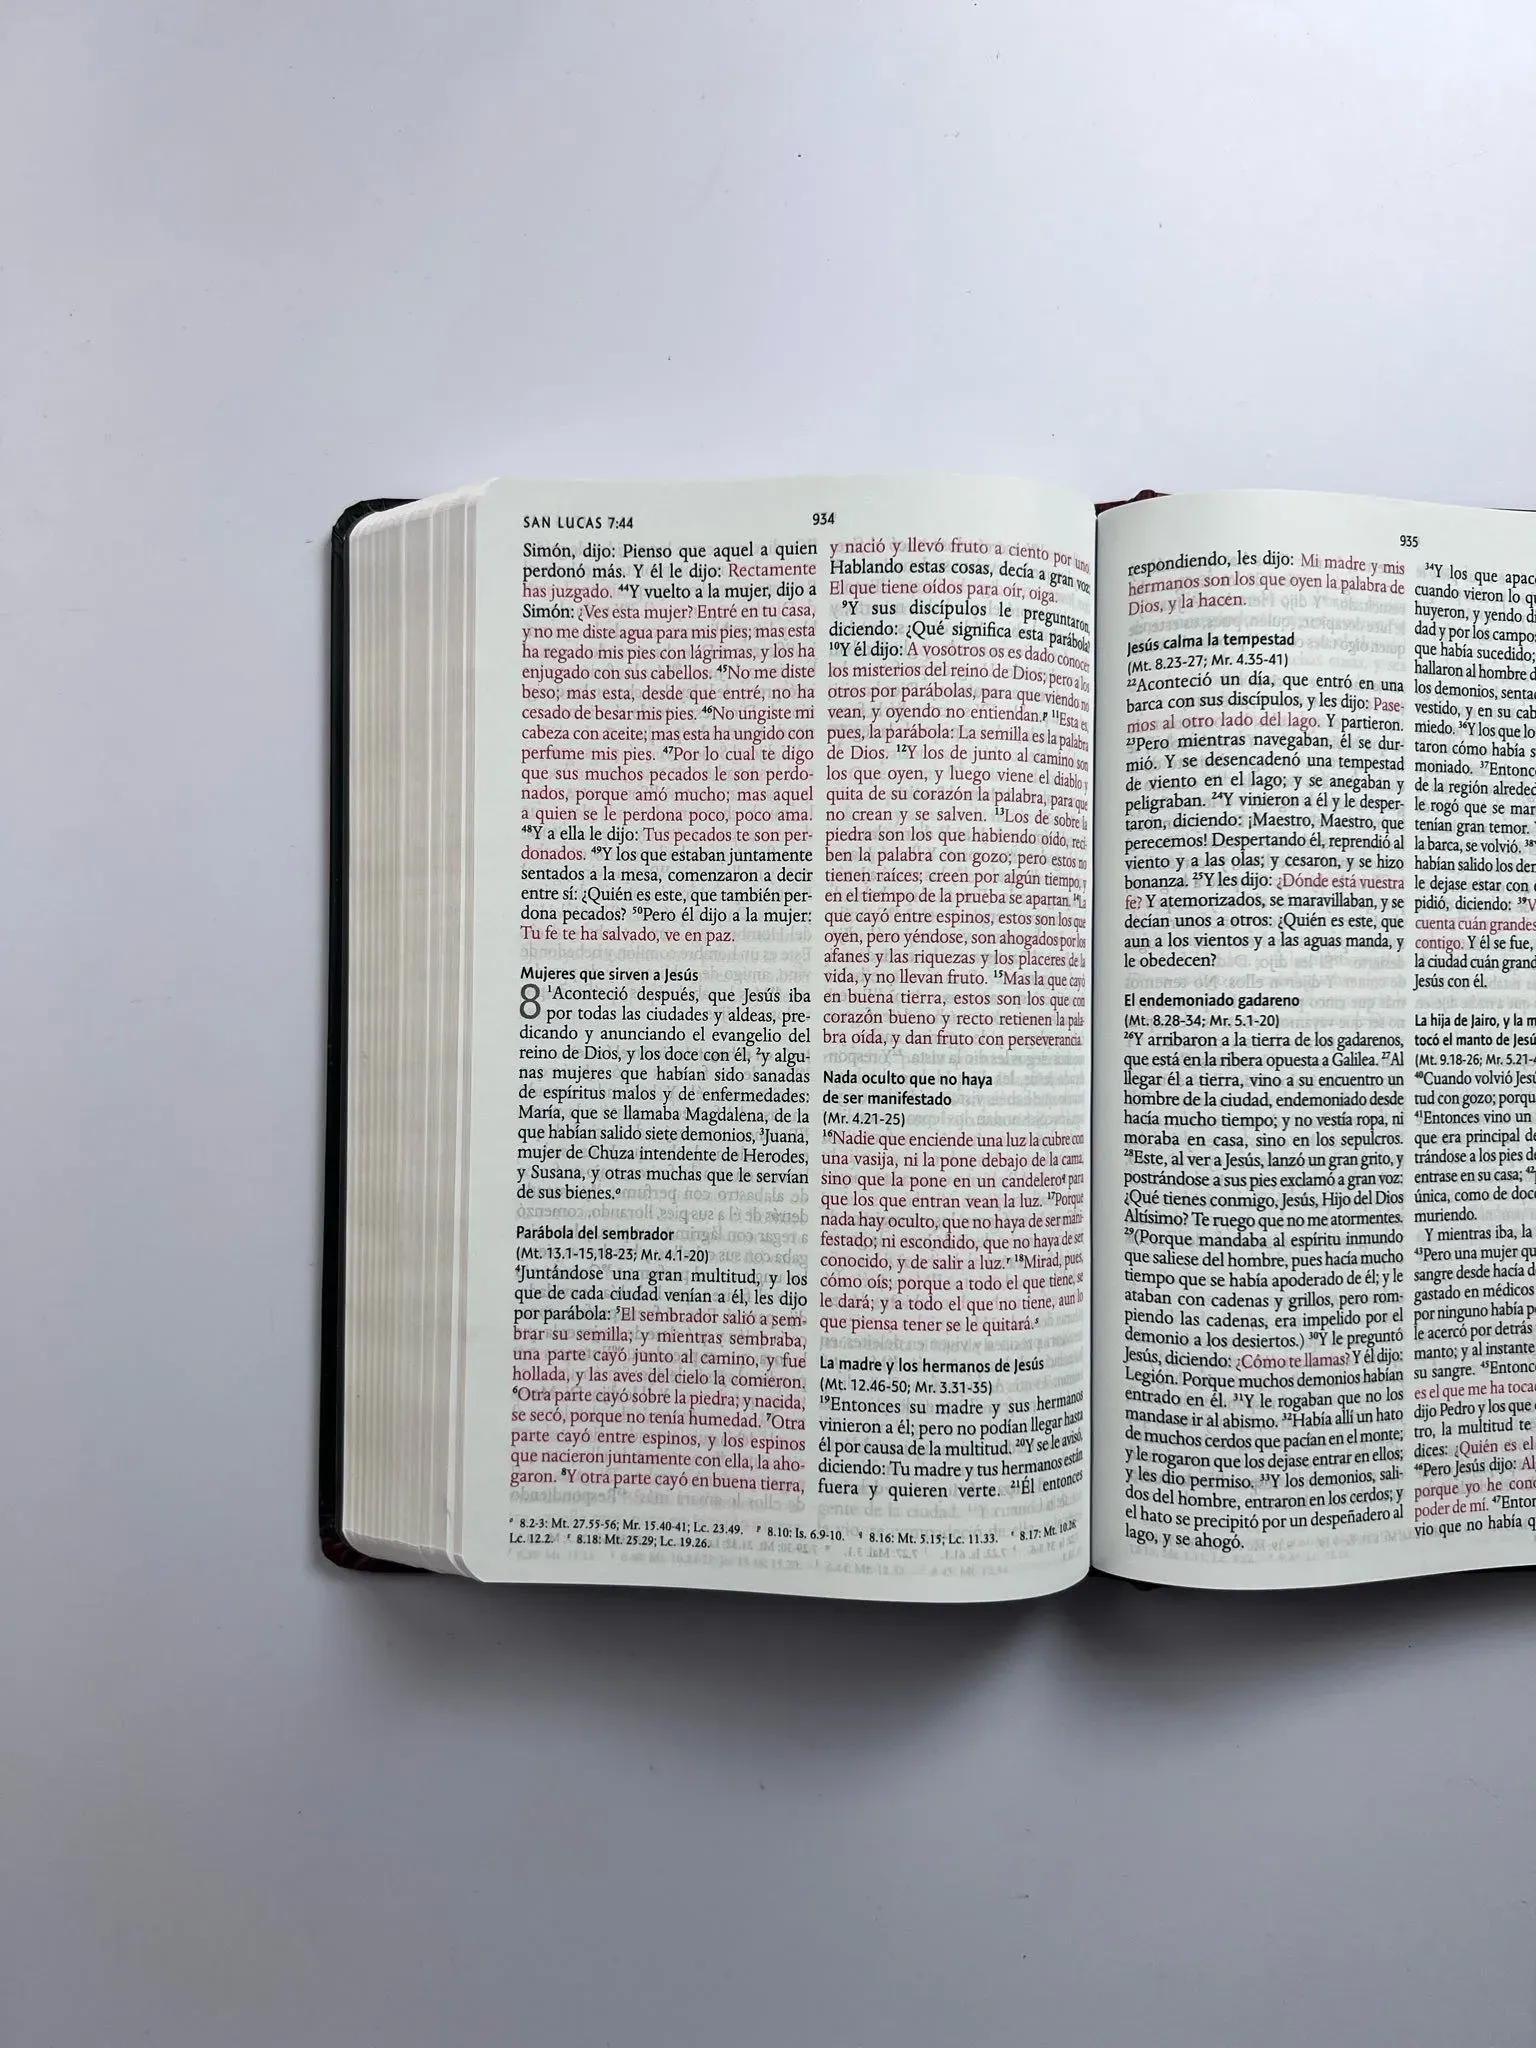 SAN LUCAS 7:44
934
Simón, dijo: Pienso que aquel a quien
perdonó más. Y él le dijo: Rectamente
has juzgado. ⁴⁴Y vuelto a la mujer, dijo a
Simón: ¿Ves esta mujer? Entré en tu casa,
y no me diste agua para mis pies; mas esta
ha regado mis pies con lágrimas, y los ha
enjugado con sus cabellos. ⁴⁵No me diste
beso; mas esta, desde que entré, no ha
cesado de besar mis pies. ⁴⁶No ungiste mi
cabeza con aceite; mas esta ha ungido con
perfume mis pies. ⁴⁷Por lo cual te digo
que sus muchos pecados le son perdo-
nados, porque amó mucho; mas aquel
a quien se le perdona poco, poco ama.
⁴⁸Y a ella le dijo: Tus pecados te son per-
donados. ⁴⁹Y los que estaban juntamente
sentados a la mesa, comenzaron a decir
entre sí: ¿Quién es este, que también per-
dona pecados? ⁵⁰Pero él dijo a la mujer:
Tu fe te ha salvado, ve en paz.
Mujeres que sirven a Jesús
8 ¹Aconteció después, que Jesús iba
por todas las ciudades y aldeas, pre-
dicando y anunciando el evangelio del
reino de Dios, y los doce con él, ²y algu-
nas mujeres que habían sido sanadas
de espíritus malos y de enfermedades:
María, que se llamaba Magdalena, de la
que habían salido siete demonios, ³Juana,
mujer de Chuza intendente de Herodes,
y Susana, y otras muchas que le servían
de sus bienes.ᵒ
Parábola del sembrador
(Mt. 13.1-15,18-23; Mr. 4.1-20)
⁴Juntándose una gran multitud, y los
que de cada ciudad venían a él, les dijo
por parábola: ⁵El sembrador salió a sem-
brar su semilla; y mientras sembraba,
una parte cayó junto al camino, y fue
hollada, y las aves del cielo la comieron.
⁶Otra parte cayó sobre la piedra; y nacida,
se secó, porque no tenía humedad. ⁷Otra
parte cayó entre espinos, y los espinos
que nacieron juntamente con ella, la aho-
garon. ⁸Y otra parte cayó en buena tierra,
y nació y llevó fruto a ciento por uno.
Hablando estas cosas, decía a gran voz:
El que tiene oídos para oír, oiga.
⁹Y sus discípulos le preguntaron,
diciendo: ¿Qué significa esta parábola?
¹⁰Y él dijo: A vosotros os es dado conocer
los misterios del reino de Dios; pero a los
otros por parábolas, para que viendo no
vean, y oyendo no entiendan.ᵖ ¹¹Esta es,
pues, la parábola: La semilla es la palabra
de Dios. ¹²Y los de junto al camino son
los que oyen, y luego viene el diablo y
quita de su corazón la palabra, para que
no crean y se salven. ¹³Los de sobre la
piedra son los que habiendo oído, reci-
ben la palabra con gozo; pero estos no
tienen raíces; creen por algún tiempo, y
en el tiempo de la prueba se apartan. ¹⁴La
que cayó entre espinos, estos son los que
oyen, pero yéndose, son ahogados por los
afanes y las riquezas y los placeres de la
vida, y no llevan fruto. ¹⁵Mas la que cayó
en buena tierra, estos son los que con
corazón bueno y recto retienen la pala-
bra oída, y dan fruto con perseverancia.
Nada oculto que no haya
de ser manifestado
(Mr. 4.21-25)
¹⁶Nadie que enciende una luz la cubre con
una vasija, ni la pone debajo de la cama,
sino que la pone en un candelero𐞥 para
que los que entran vean la luz. ¹⁷Porque
nada hay oculto, que no haya de ser mani-
festado; ni escondido, que no haya de ser
conocido, y de salir a luz.ʳ ¹⁸Mirad, pues,
cómo oís; porque a todo el que tiene, se
le dará; y a todo el que no tiene, aun lo
que piensa tener se le quitará.ˢ
La madre y los hermanos de Jesús
(Mt. 12.46-50; Mr. 3.31-35)
¹⁹Entonces su madre y sus hermanos
vinieron a él; pero no podían llegar hasta
él por causa de la multitud. ²⁰Y se le avisó,
diciendo: Tu madre y tus hermanos están
fuera y quieren verte. ²¹Él entonces
ᵒ 8.2-3: Mt. 27.55-56; Mr. 15.40-41; Lc. 23.49. ᵖ 8.10: Is. 6.9-10. 𐞥 8.16: Mt. 5.15; Lc. 11.33. ʳ 8.17: Mt. 10.26;
Lc. 12.2. ˢ 8.18: Mt. 25.29; Lc. 19.26.
935
respondiendo, les dijo: Mi madre y mis
hermanos son los que oyen la palabra de
Dios, y la hacen.
Jesús calma la tempestad
(Mt. 8.23-27; Mr. 4.35-41)
²²Aconteció un día, que entró en una
barca con sus discípulos, y les dijo: Pase-
mos al otro lado del lago. Y partieron.
²³Pero mientras navegaban, él se dur-
mió. Y se desencadenó una tempestad
de viento en el lago; y se anegaban y
peligraban. ²⁴Y vinieron a él y le desper-
taron, diciendo: ¡Maestro, Maestro, que
perecemos! Despertando él, reprendió al
viento y a las olas; y cesaron, y se hizo
bonanza. ²⁵Y les dijo: ¿Dónde está vuestra
fe? Y atemorizados, se maravillaban, y se
decían unos a otros: ¿Quién es este, que
aun a los vientos y a las aguas manda, y
le obedecen?
El endemoniado gadareno
(Mt. 8.28-34; Mr. 5.1-20)
²⁶Y arribaron a la tierra de los gadarenos,
que está en la ribera opuesta a Galilea. ²⁷Al
llegar él a tierra, vino a su encuentro un
hombre de la ciudad, endemoniado desde
hacía mucho tiempo; y no vestía ropa, ni
moraba en casa, sino en los sepulcros.
²⁸Este, al ver a Jesús, lanzó un gran grito, y
postrándose a sus pies exclamó a gran voz:
¿Qué tienes conmigo, Jesús, Hijo del Dios
Altísimo? Te ruego que no me atormentes.
²⁹(Porque mandaba al espíritu inmundo
que saliese del hombre, pues hacía mucho
tiempo que se había apoderado de él; y le
ataban con cadenas y grillos, pero rom-
piendo las cadenas, era impelido por el
demonio a los desiertos.) ³⁰Y le preguntó
Jesús, diciendo: ¿Cómo te llamas? Y él dijo:
Legión. Porque muchos demonios habían
entrado en él. ³¹Y le rogaban que no los
mandase ir al abismo. ³²Había allí un hato
de muchos cerdos que pacían en el monte;
y le rogaron que los dejase entrar en ellos;
y les dio permiso. ³³Y los demonios, sali-
dos del hombre, entraron en los cerdos; y
el hato se precipitó por un despeñadero al
lago, y se ahogó.
³⁴Y los que
cuando vieron lo
huyeron, y yendo
dad y por los
que había sucedido;
hallaron al hombre
los demonios,
vestido, y en su
miedo. ³⁶Y los que lo
taron cómo había
moniado. ³⁷
de la región
le rogó que se
tenían gran temor.
la barca, se volvió.
habían salido los
le dejase estar con
pidió, diciendo:
cuenta cuán grandes
contigo. Y él se fue,
la ciudad cuán
Jesús con él.
La hija de Jairo, y la
tocó el manto de
(Mt. 9.18-26; Mr.
⁴⁰Cuando volvió
tud con gozo;
⁴¹Entonces vino un
que era principal
trándose a los pies
entrase en su casa;
única, como de
muriendo.
Y mientras iba, la
⁴³Pero una mujer
sangre desde hacía
gastado en médicos
por ninguno había
le acercó por detrás
manto; y al instante
su sangre.
es el que me ha
dijo Pedro y los que
tro, la multitud te
dices: ¿Quién es el
⁴⁶Pero Jesús dijo:
porque yo he
poder de mí.
vio que no había